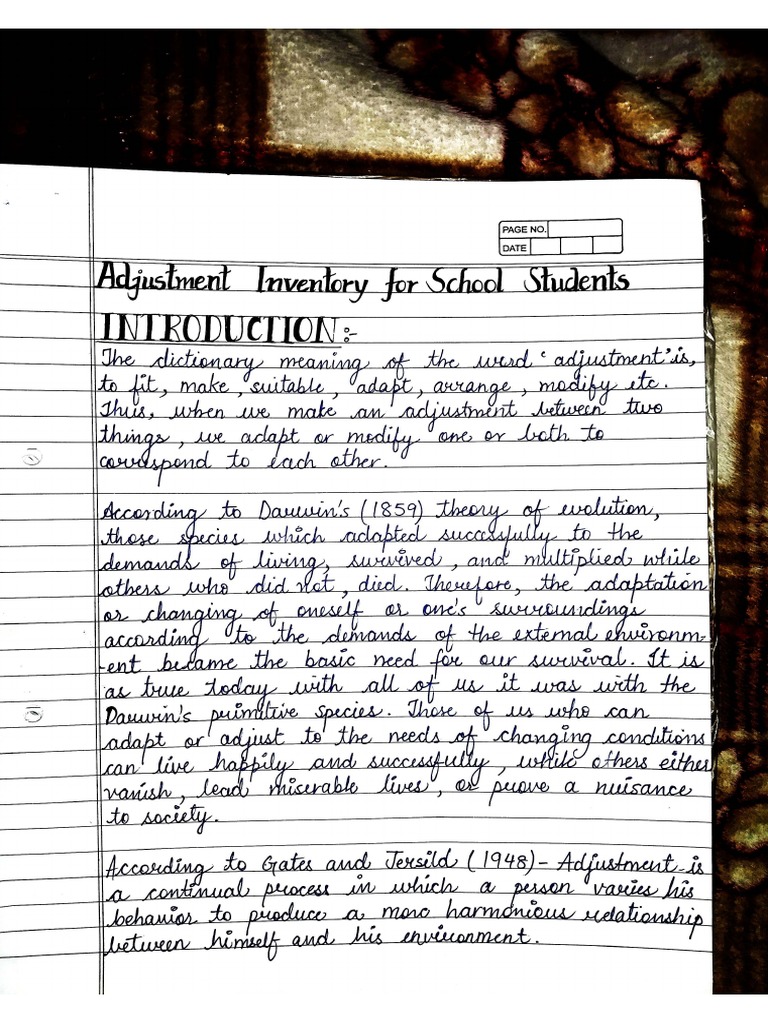 PAGE NO.
DATE
Adjustment Inventory for School Students
INTRODUCTION:-
The dictionary meaning of the word 'adjustment' is,
to fit, make, suitable, adapt, arrange, modify etc.
Thus, when we make an adjustment between two
things, we adapt or modify one or both to
correspond to each other.
According to Darwin's (1859) theory of evolution,
those species which adapted successfully to the
demands of living, survived, and multiplied while
others who did not, died. Therefore, the adaptation
or changing of oneself or one's surroundings
according to the demands of the external environm-
-ent became the basic need for our survival. It is
as true today with all of us it was with the
Darwin's primitive species. Those of us who can
adapt or adjust to the needs of changing conditions
can live happily and successfully, while others either
vanish, lead miserable lives, or prove a nuisance
to society.
According to Gates and Jersild (1948)- Adjustment is
a continual process in which a person varies his
behavior to produce a more harmonious relationship
between himself and his environment.